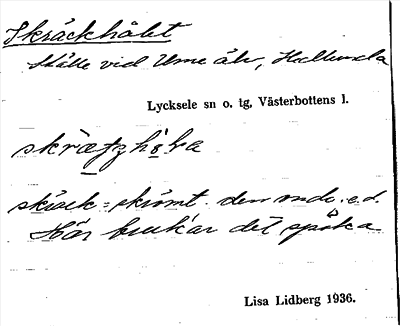 Skräckhålet
Ställe vid Ume älv, Hällunda
Lycksele sn o. tg, Västerbottens l.
skräck = skrämt. den onde. e.d.
Här brukar det spöka
Lisa Lidberg 1936.